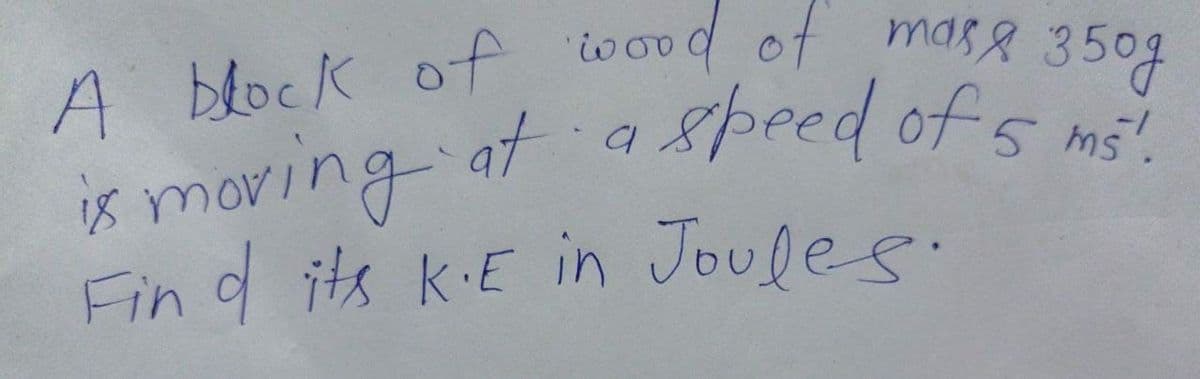 A block of wood of mass 350g
is moving at a speed of 5 ms⁻¹.
Find its K.E in Joules.